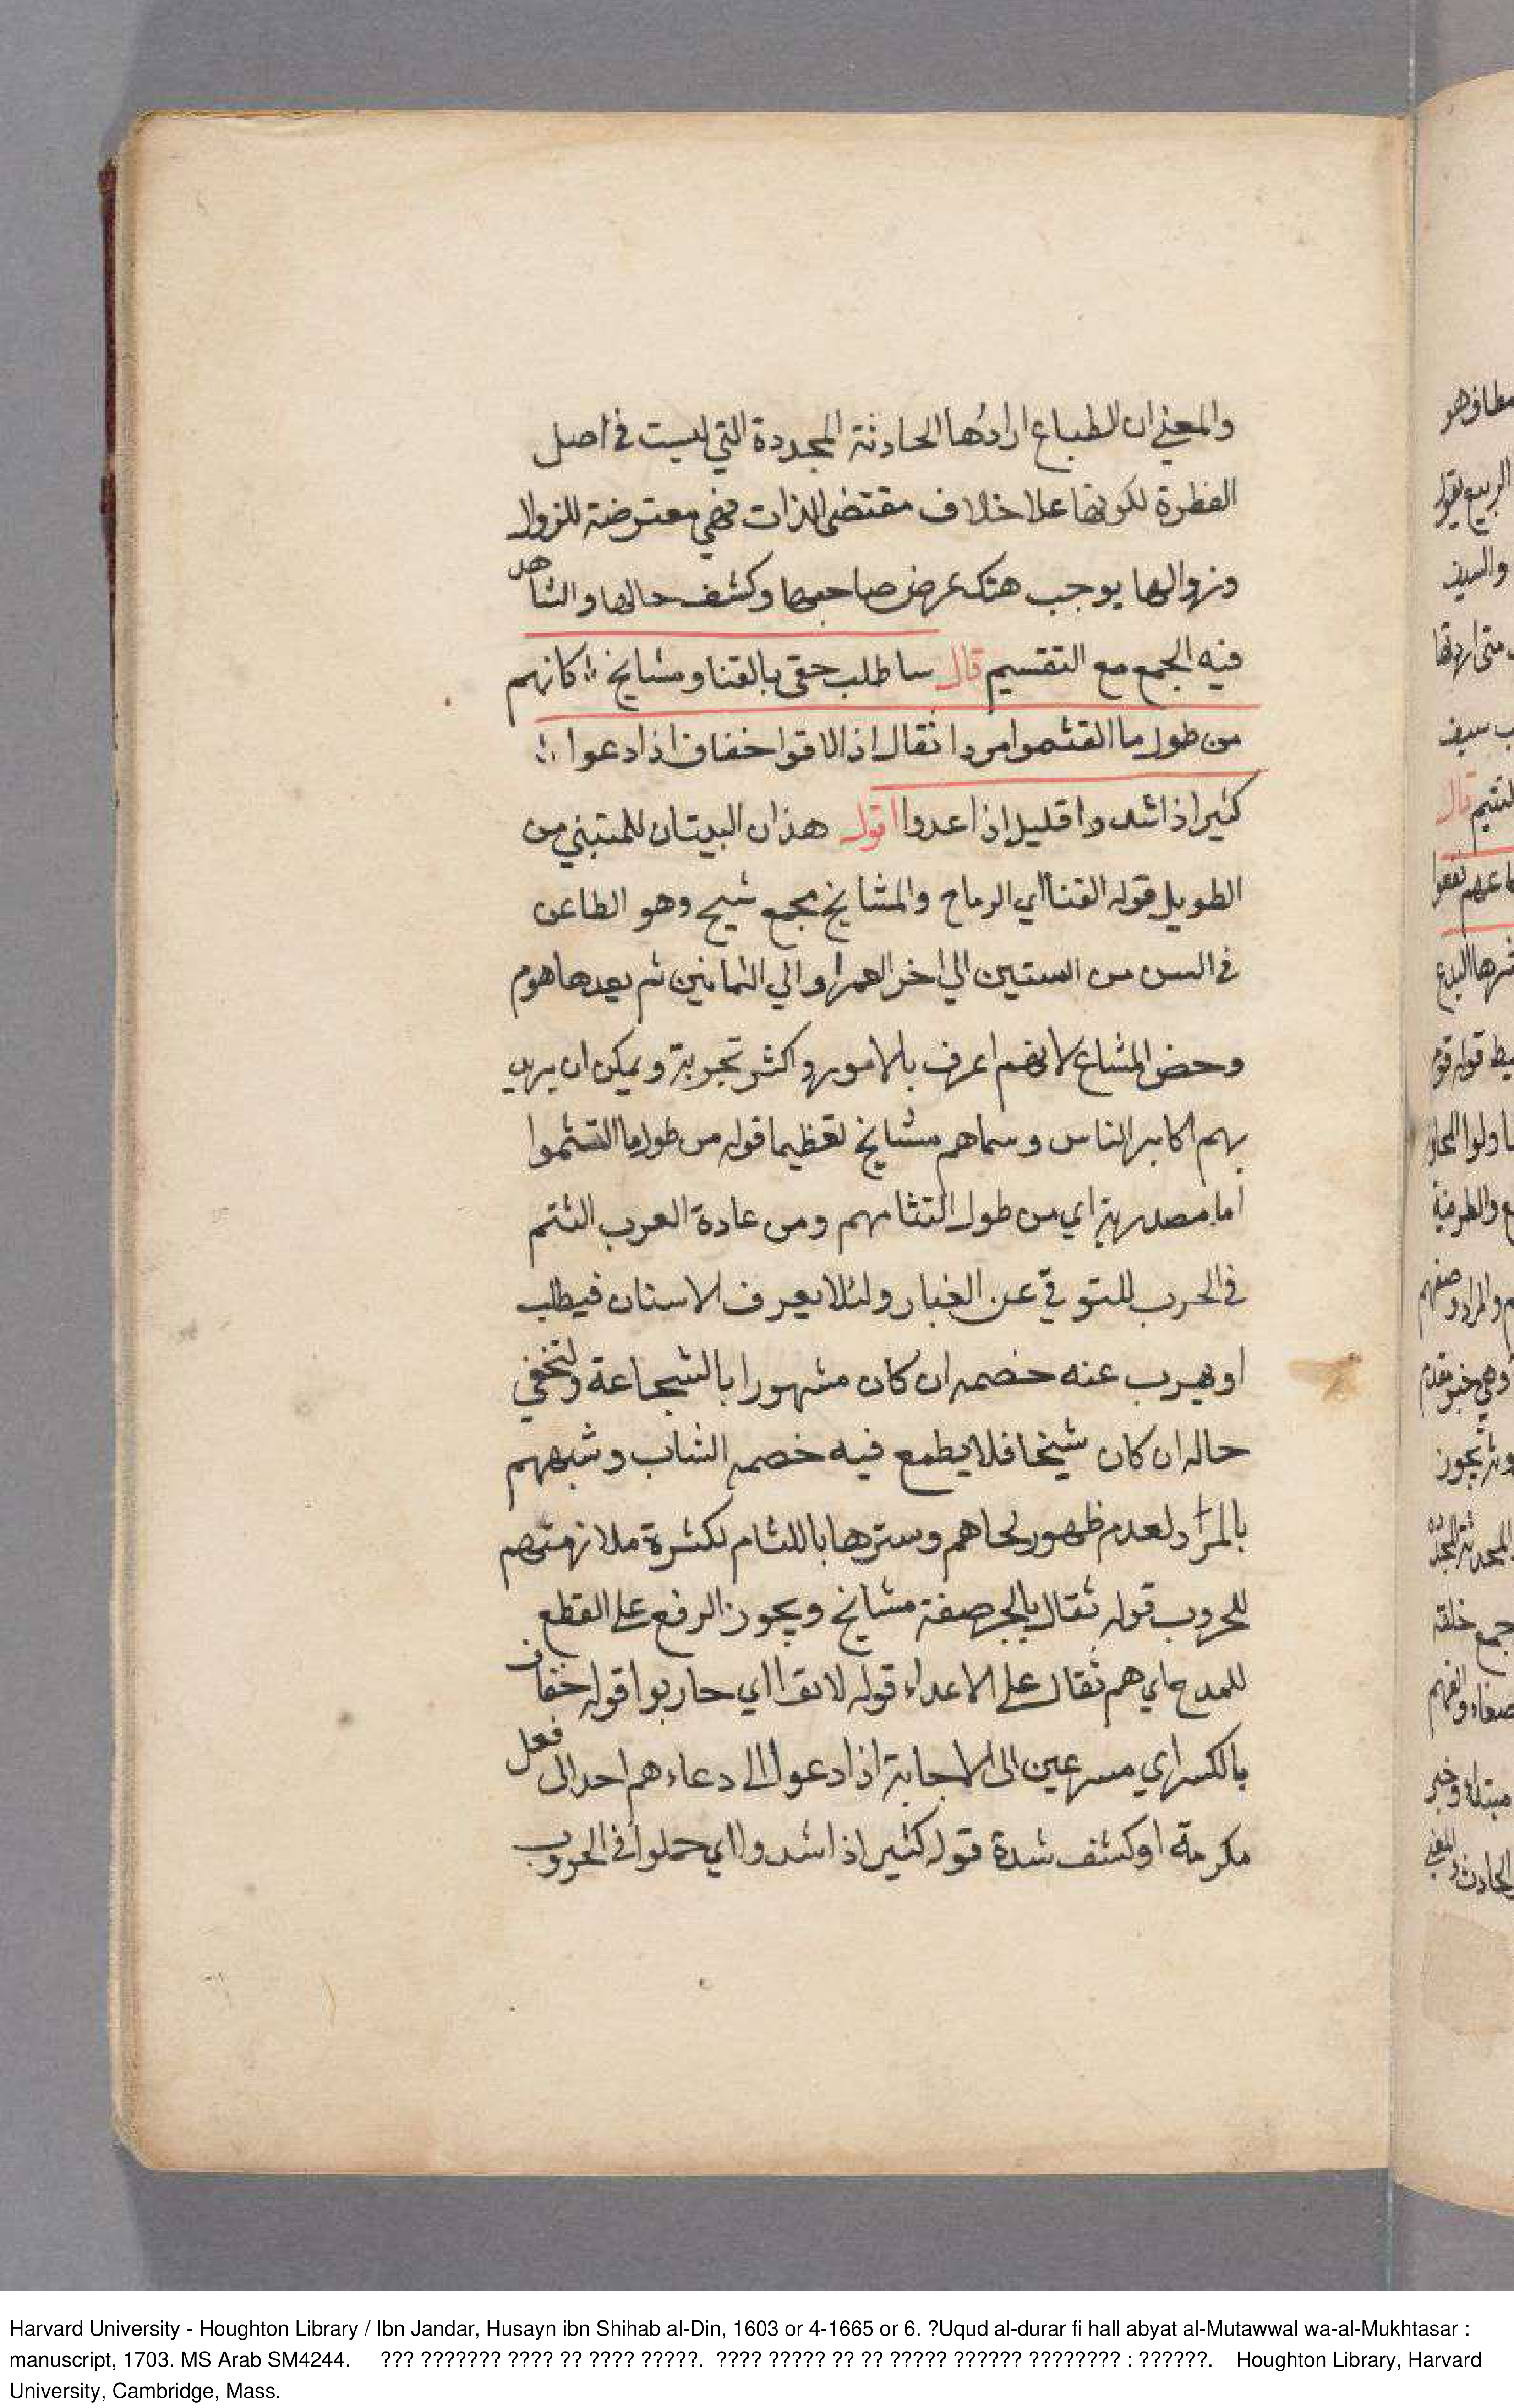 والمعني ان الطباع اراد بها الحادثة المجددة التي ليست في اصل
الفطرة لكونها علا خلاف مقتضى الذات فهي معترضة للزوال
وزوالها يوجب هتك عرض صاحبها وكشف حالها والشاهد
فيه الجمع مع التقسيم قال ساطلب حقي بالقنا ومشايخ ؛ كانهم
من طول ما القثموا مردا ثقال اذ الاقوا خفاف اذا دعوا ؛
كثير اذا شدوا قليل اذا عدوا اقول هذان البيتان للمتبني من
الطويل قوله القنا اي الرماح والمشايخ مجمع شيح وهو الطاعن
في السن من الستين الي اخر العمر او الي الثمانين ثم بعدها هوم
وحض المشاع لانهم اعرف بالامور واكثر تجربة ويمكن ان يريد
بهم اكابر الناس وسماهم مشايخ تعظيما قوله من طول ما التثموا
اما مصدرية اي من طول التثامهم ومن عادة العرب التثم
في الحرب للتوقي عن الغبار ولئلا يعرف الاسنان فيطلب
او يهرب عنه خصمه ان كان مشهورا بالشجاعة ولتخفي
حاله ان كان شيخا فلا يطمع فيه خصمه الشاب وشبههم
بالمراد لعدم ظهور لحاهم وسترها باللثام لكثرة ملازمتهم
للحروب قوله ثقال بالجر صفة مشايخ ويجوز الرفع على القطع
للمدح اي هم ثقال على الاعداء قوله لاقوا اي حاربوا قوله خفاف
بالكسر اي مسرعين الى الاجابة اذا دعوا الى دعاءهم احد الى فعل
مكرمة او كشف شدة قوله كثير اذا شدوا اي حملوا في الحروب
مطافوهو
الربيع يقول
والسيف
متى اردتها
ب سيف
التقسيم قال
يط قوله قوم
ع والطرفية
وهي خبر مقدم
جمع خلقه
مبتداء وخبر
Harvard University - Houghton Library / Ibn Jandar, Husayn ibn Shihab al-Din, 1603 or 4-1665 or 6. ?Uqud al-durar fi hall abyat al-Mutawwal wa-al-Mukhtasar :
manuscript, 1703. MS Arab SM4244. ??? ??????? ???? ?? ???? ?????. ???? ????? ?? ?? ????? ?????? ???????? : ??????. Houghton Library, Harvard
University, Cambridge, Mass.